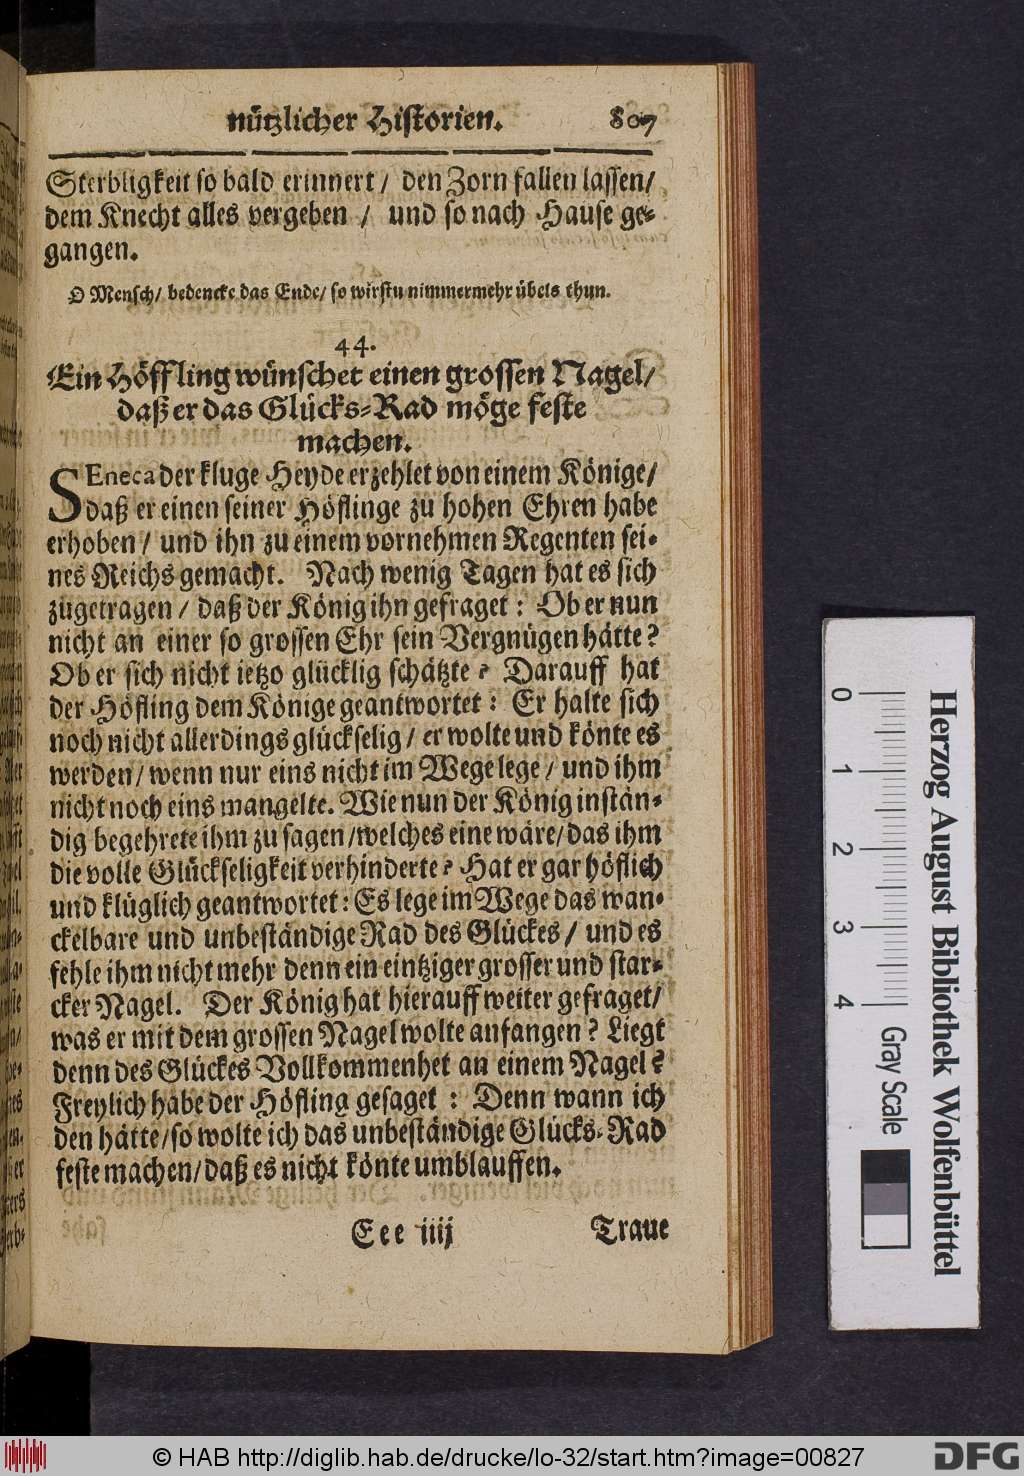 nützlicher Historien. 807
Sterbligkeit so bald erinnert / den Zorn fallen lassen/
dem Knecht alles vergeben / und so nach Hause ge-
gangen.
O Mensch/ bedencke das Ende/ so wirstu nimmermehr übels thun.
44.
Ein Höffling wünschet einen grossen Nagel/
daß er das Glücks-Rad möge feste
machen.
SEneca der kluge Heyde erzehlet von einem Könige/
daß er einen seiner Höflinge zu hohen Ehren habe
erhoben / und ihn zu einem vornehmen Regenten sei-
nes Reichs gemacht. Nach wenig Tagen hat es sich
zugetragen / daß der König ihn gefraget : Ob er nun
nicht an einer so grossen Ehr sein Vergnügen hätte?
Ob er sich nicht ietzo glücklig schätzte? Darauff hat
der Höfling dem Könige geantwortet : Er halte sich
noch nicht allerdings glückselig / er wolte und könte es
werden / wenn nur eins nicht im Wege lege / und ihm
nicht noch eins mangelte. Wie nun der König instän-
dig begehrete ihm zu sagen /welches eine wäre/ das ihm
die volle Glückseligkeit verhinderte? Hat er gar höflich
und klüglich geantwortet : Es lege im Wege das wan-
ckelbare und unbeständige Rad des Glückes / und es
fehle ihm nicht mehr denn ein eintziger grosser und star-
cker Nagel. Der König hat hierauff weiter gefraget/
was er mit dem grossen Nagel wolte anfangen? Liegt
denn des Glückes Vollkommenhet an einem Nagel?
Freylich habe der Höfling gesaget : Denn wann ich
den hätte /so wolte ich das unbeständige Glücks-Rad
feste machen/ daß es nicht könte umblauffen.
Eee iiij Traue
Herzog August Bibliothek Wolfenbüttel
0 1 2 3 4 Gray Scale
© HAB http://diglib.hab.de/drucke/lo-32/start.htm?image=00827
DFG